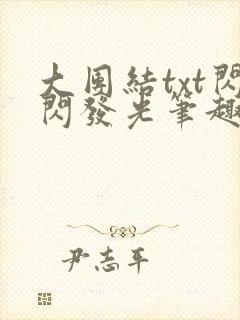 大團結txt閃
閃發光筆趣
尹志平